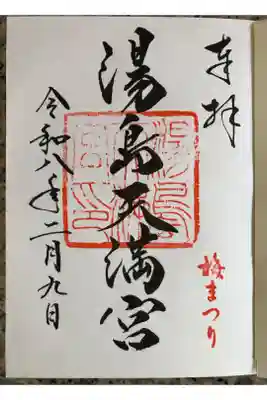 奉拝
梅まつり
湯島天満宮
令和八年二月九日